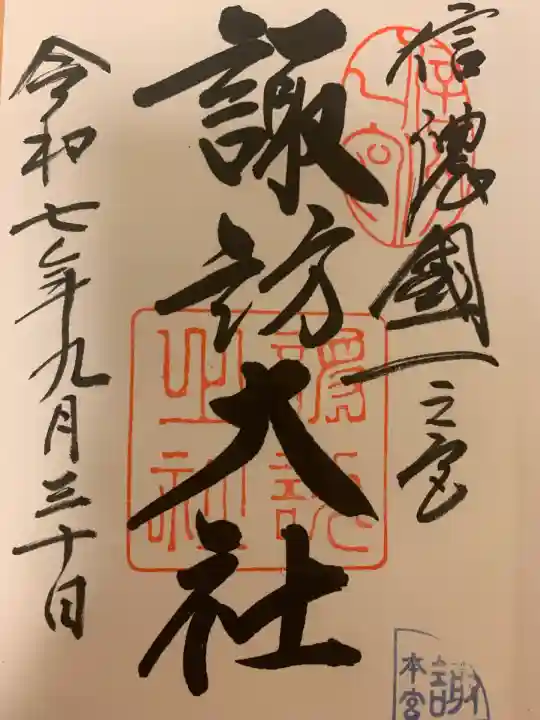 信濃國一之宮
諏訪大社
令和七年九月三十日
諏訪
之社
本宮